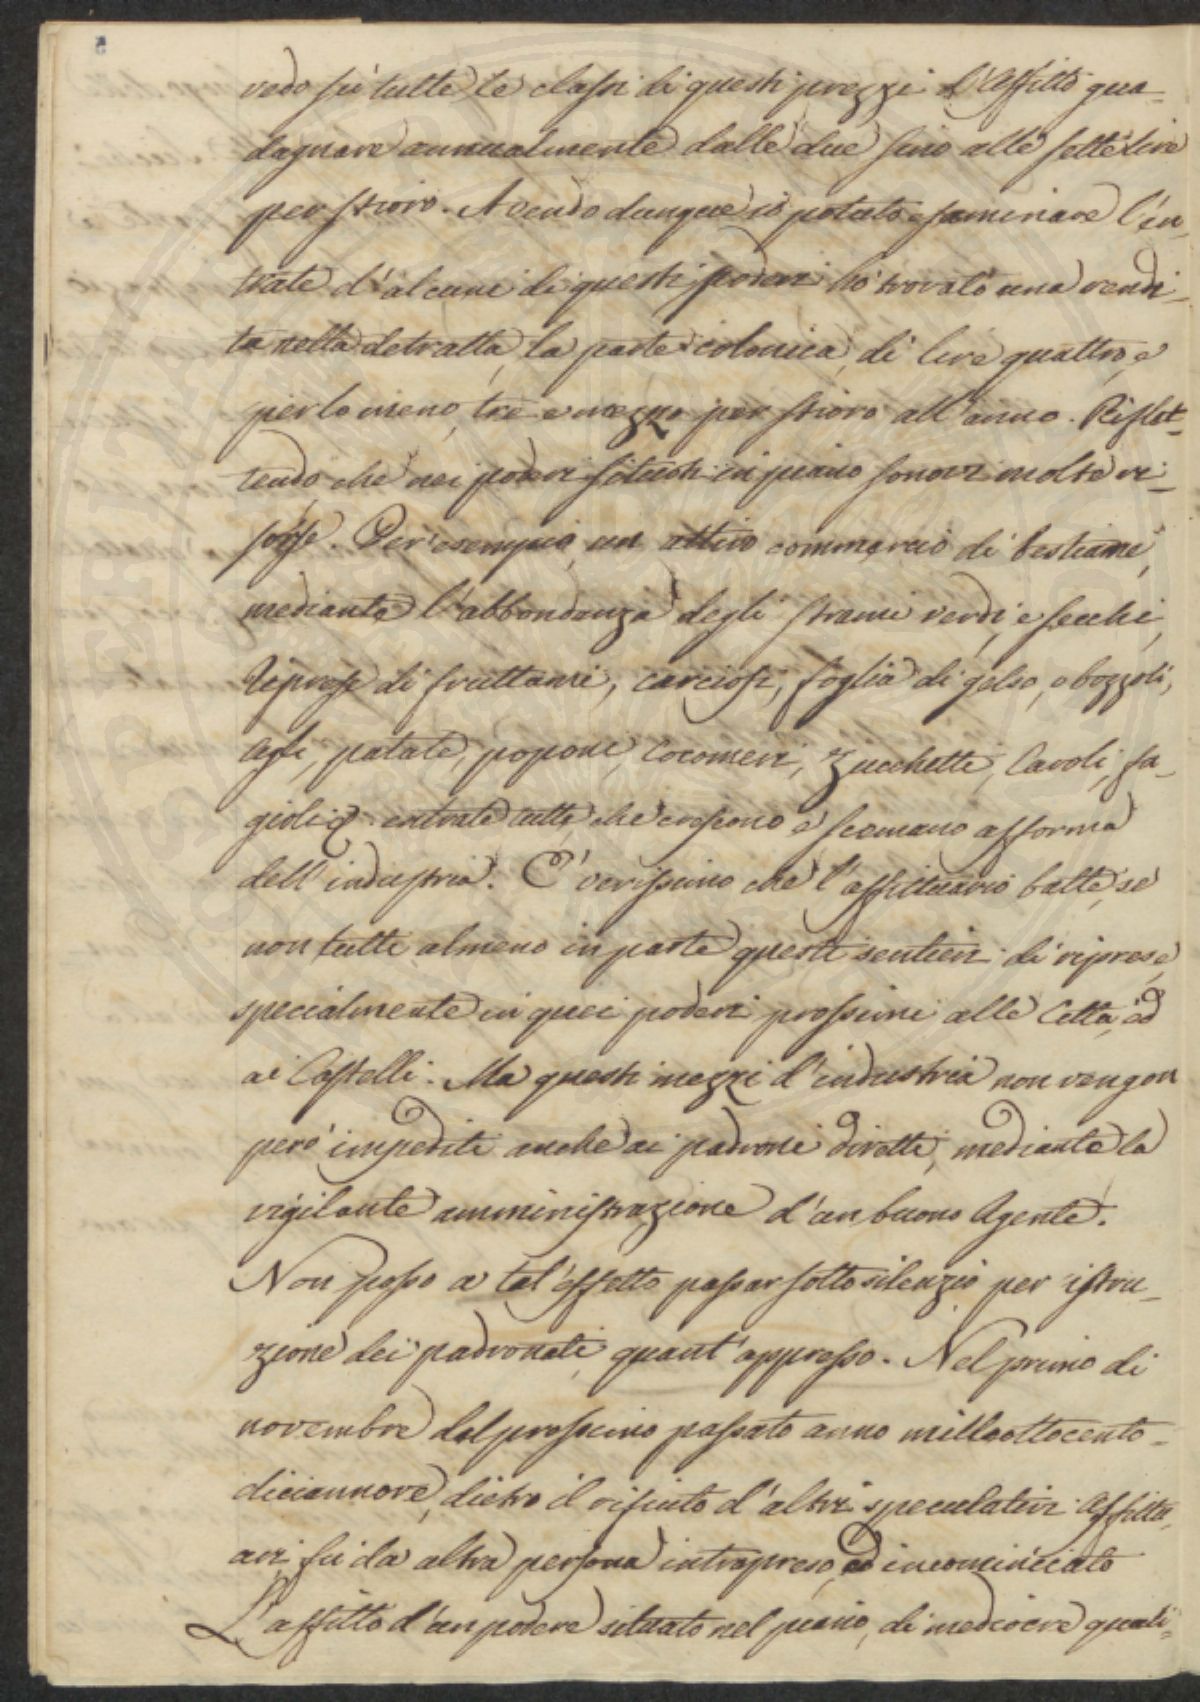 vedo sù tutte le classi di questi prezzi d'Affitto gua-
dagnare annualmente dalle due sino alle sette Lire
per stioro. Avendo dunque io potuto esaminare l'en-
trate d'alcuni di questi poderi hò trovato una rendi-
ta netta detratta, la parte colonica, di lire quattro, e
perlomeno, tre e mezzo per stioro all'anno. Riflet-
tendo, che nei poderi situati in piano sonovi molte ri-
sorse. Per esempio, un attivo commercio di bestiame,
mediante l'abbondanza degli strami verdi, e secchi,
Riprese di fruttami, carciofi, foglia di gelso, o bozzoli,
Agli, patate, poponi, Cocomeri, Zucchette, Cavoli, fa-
gioli &. entrate tutte, che crescono e scemano afforma
dell'industria. E' verissimo che l'affittuario batte, se
non tutti almeno in parte questi sentieri di riprese,
specialmente in quei poderi prossimi alle Città, ed
ai Castelli. Ma questi mezzi d'industria non vengon
però impediti anche ai padroni diretti, mediante la
vigilante amministrazione d'un buono Agente.
Non posso a tal'effetto passar sotto silenzio per istru-
zione dei padronati, quant'appresso. Nel primo di
novembre del prossimo passato anno milleottocento-
diciannove, dietro il rifiuto d'altri speculativi Affittu-
ari fù da altra persona intrapreso, ed incominciato
L'affitto d'un podere situato nel piano, di mediocre quali-